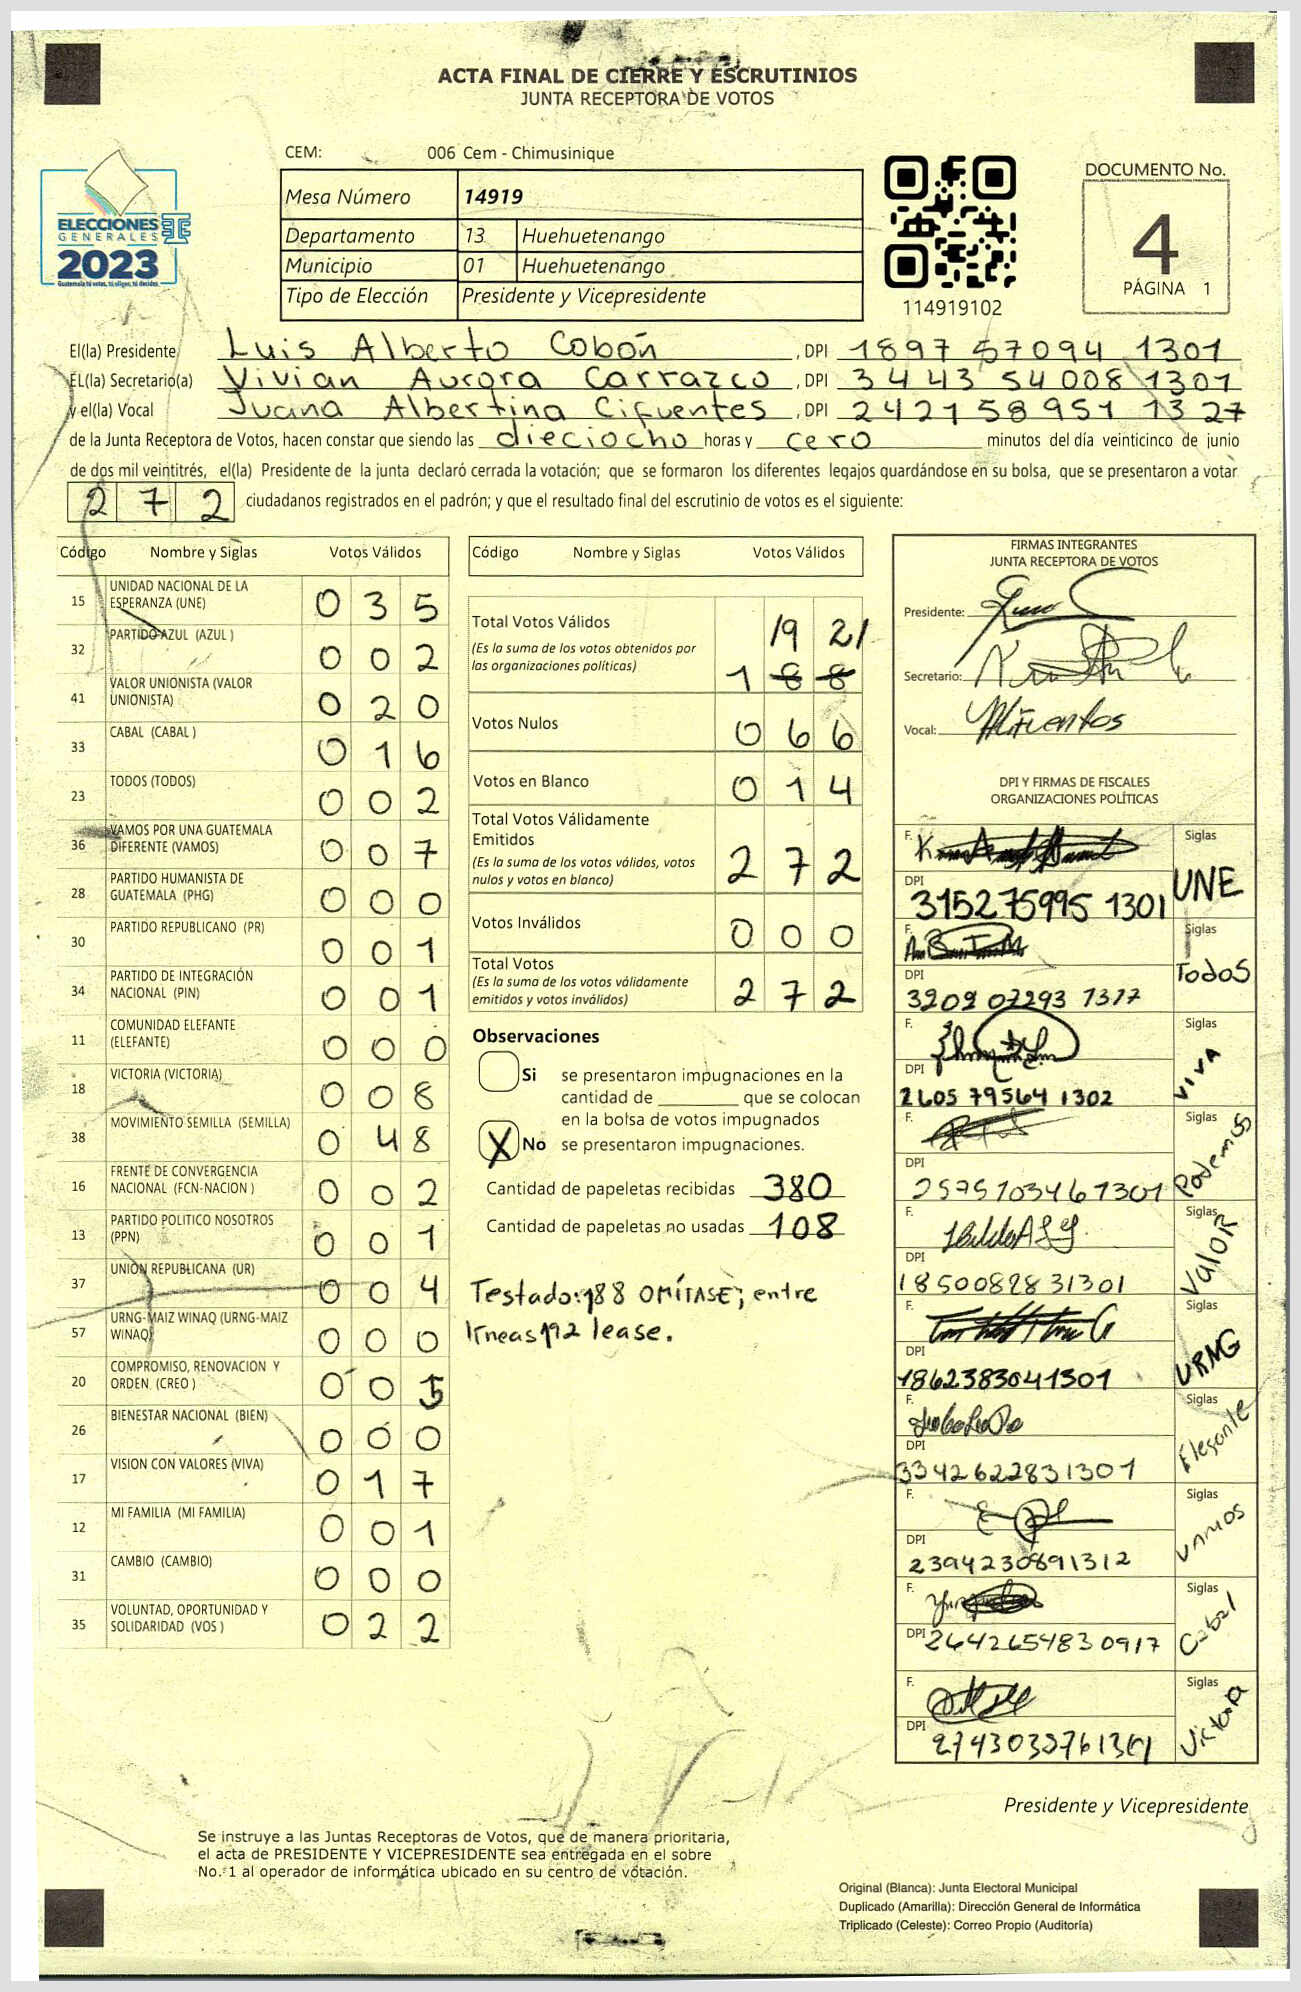 ACTA FINAL DE CIERRE Y ESCRUTINIOS
JUNTA RECEPTORA DE VOTOS
CEM: 006 Cem - Chimusinique
ELECCIONES
GENERALES
2023
Guatemala tú votas, tú eliges, tú decides
Mesa Número 14919
Departamento 13 Huehuetenango
Municipio 01 Huehuetenango
Tipo de Elección Presidente y Vicepresidente
114919102
DOCUMENTO No.
4
PÁGINA 1
El(la) Presidente Luis Alberto Cobón , DPI 1897 57094 1301
EL(la) Secretario(a) Vivian Aurora Carrazco , DPI 3443 54008 1301
y el(la) Vocal Juana Albertina Cifuentes , DPI 2421 58951 1327
de la Junta Receptora de Votos, hacen constar que siendo las dieciocho horas y cero minutos del día veinticinco de junio
de dos mil veintitrés, el(la) Presidente de la junta declaró cerrada la votación; que se formaron los diferentes legajos guardándose en su bolsa, que se presentaron a votar
272 ciudadanos registrados en el padrón; y que el resultado final del escrutinio de votos es el siguiente:
Código Nombre y Siglas Votos Válidos
15 UNIDAD NACIONAL DE LA ESPERANZA (UNE) 0 3 5
32 PARTIDO AZUL (AZUL ) 0 0 2
41 VALOR UNIONISTA (VALOR UNIONISTA) 0 2 0
33 CABAL (CABAL ) 0 1 6
23 TODOS (TODOS) 0 0 2
36 VAMOS POR UNA GUATEMALA DIFERENTE (VAMOS) 0 0 7
28 PARTIDO HUMANISTA DE GUATEMALA (PHG) 0 0 0
30 PARTIDO REPUBLICANO (PR) 0 0 1
34 PARTIDO DE INTEGRACIÓN NACIONAL (PIN) 0 0 1
11 COMUNIDAD ELEFANTE (ELEFANTE) 0 0 0
18 VICTORIA (VICTORIA) 0 0 8
38 MOVIMIENTO SEMILLA (SEMILLA) 0 4 8
16 FRENTE DE CONVERGENCIA NACIONAL (FCN-NACION ) 0 0 2
13 PARTIDO POLITICO NOSOTROS (PPN) 0 0 1
37 UNION REPUBLICANA (UR) 0 0 4
57 URNG-MAIZ WINAQ (URNG-MAIZ WINAQ) 0 0 0
20 COMPROMISO, RENOVACION Y ORDEN (CREO ) 0 0 5
26 BIENESTAR NACIONAL (BIEN) 0 0 0
17 VISION CON VALORES (VIVA) 0 1 7
12 MI FAMILIA (MI FAMILIA) 0 0 1
31 CAMBIO (CAMBIO) 0 0 0
35 VOLUNTAD, OPORTUNIDAD Y SOLIDARIDAD (VOS ) 0 2 2
Código Nombre y Siglas Votos Válidos
Total Votos Válidos 192
(Es la suma de los votos obtenidos por
las organizaciones políticas) 1 8 8
Votos Nulos 0 6 6
Votos en Blanco 0 1 4
Total Votos Válidamente
Emitidos
(Es la suma de los votos válidos, votos
nulos y votos en blanco) 2 7 2
Votos Inválidos 0 0 0
Total Votos
(Es la suma de los votos válidamente
emitidos y votos inválidos) 2 7 2
Observaciones
Si se presentaron impugnaciones en la
cantidad de ________ que se colocan
en la bolsa de votos impugnados
X No se presentaron impugnaciones.
Cantidad de papeletas recibidas 380
Cantidad de papeletas no usadas 108
Testado: 188 OMÍTASE; entre
líneas 192 lease.
FIRMAS INTEGRANTES
JUNTA RECEPTORA DE VOTOS
Presidente:
Secretario:
Vocal: Cifuentes
DPI Y FIRMAS DE FISCALES
ORGANIZACIONES POLÍTICAS
F. Siglas
DPI 315275995 1301 UNE
F. Siglas
DPI Todos
F. Siglas
DPI 2605 79564 1302 VIVA
F. Siglas
DPI 2575703461301 Podemos
F. Siglas
DPI 1850082831301 Valor
F. Siglas
DPI 1862383041301 URNG
F. Siglas
DPI 3342622831301 Elefante
F. Siglas
DPI 2394230891312 VAMOS
F. Siglas
DPI 2642654830917 Cabal
F. Siglas
DPI Victoria
Presidente y Vicepresidente
Se instruye a las Juntas Receptoras de Votos, que de manera prioritaria,
el acta de PRESIDENTE Y VICEPRESIDENTE sea entregada en el sobre
No. 1 al operador de informática ubicado en su centro de votación.
Original (Blanca): Junta Electoral Municipal
Duplicado (Amarilla): Dirección General de Informática
Triplicado (Celeste): Correo Propio (Auditoría)